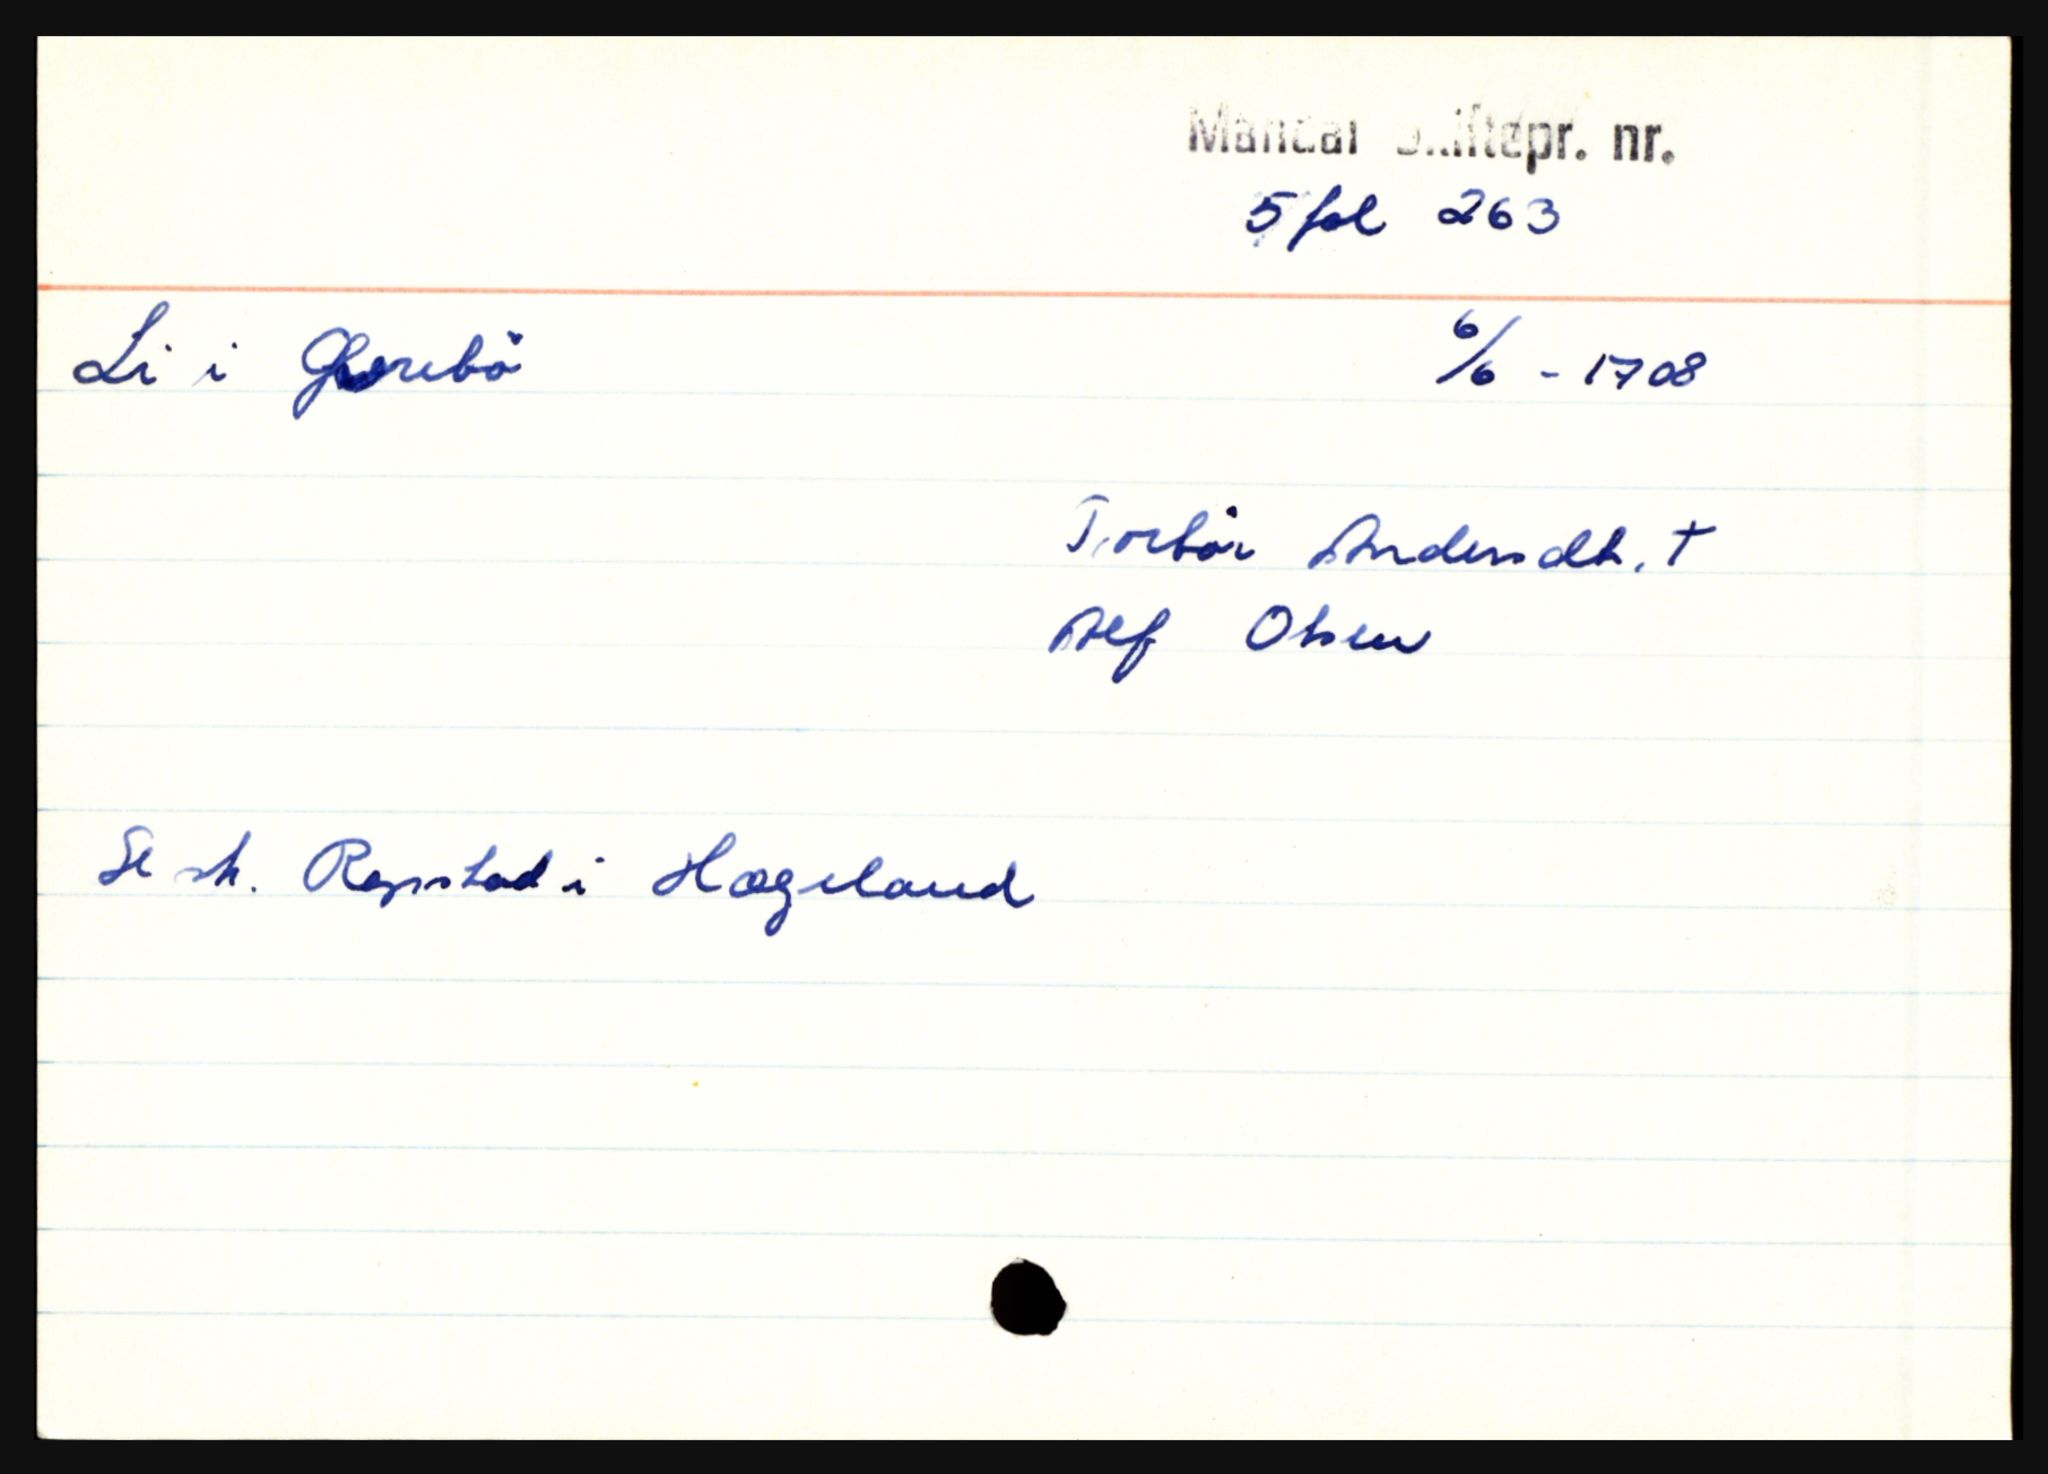 Mandal Skiftepr. nr.
5 fol 263
Li i 6/6 - 1708
Torbør Andersdtr. †
Alf Olsen
Se sk. Repstad i Hægeland